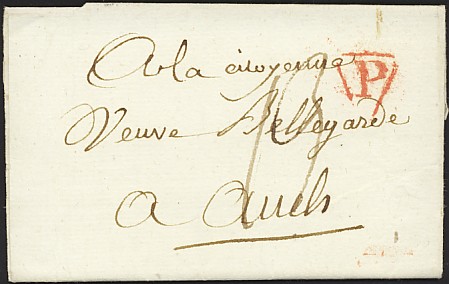 A la citoyenne
P
Veuve Bellegarde
a auch